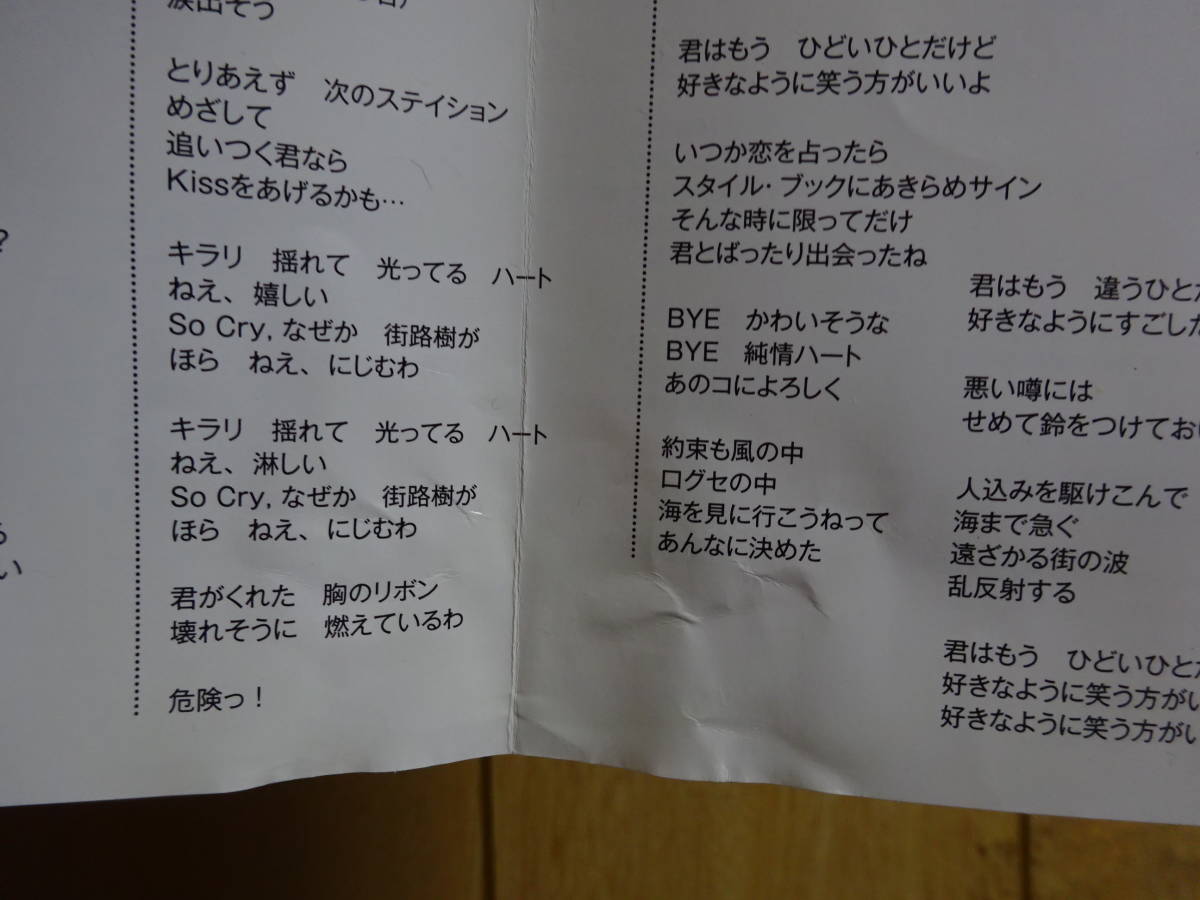 涙出そう
とりあえず　次のステイション
めざして
追いつく君なら
Kissをあげるかも…
キラリ　揺れて　光ってる　ハート
ねえ、嬉しい
So Cry, なぜか　街路樹が
ほら　ねえ、にじむわ
キラリ　揺れて　光ってる　ハート
ねえ、淋しい
So Cry, なぜか　街路樹が
ほら　ねえ、にじむわ
君がくれた　胸のリボン
壊れそうに　燃えているわ
危険っ！
君はもう　ひどいひとだけど
好きなように笑う方がいいよ
いつか恋を占ったら
スタイル・ブックにあきらめサイン
そんな時に限ってだけ
君とばったり出会ったね
BYE　かわいそうな
BYE　純情ハート
あのコによろしく
約束も風の中
口グセの中
海を見に行こうねって
あんなに決めた
君はもう　違うひとだ
好きなようにすごした
悪い噂には
せめて鈴をつけておい
人込みを駆けこんで
海まで急ぐ
遠ざかる街の波
乱反射する
君はもう　ひどいひとだ
好きなように笑う方がい
好きなように笑う方がい
？
い